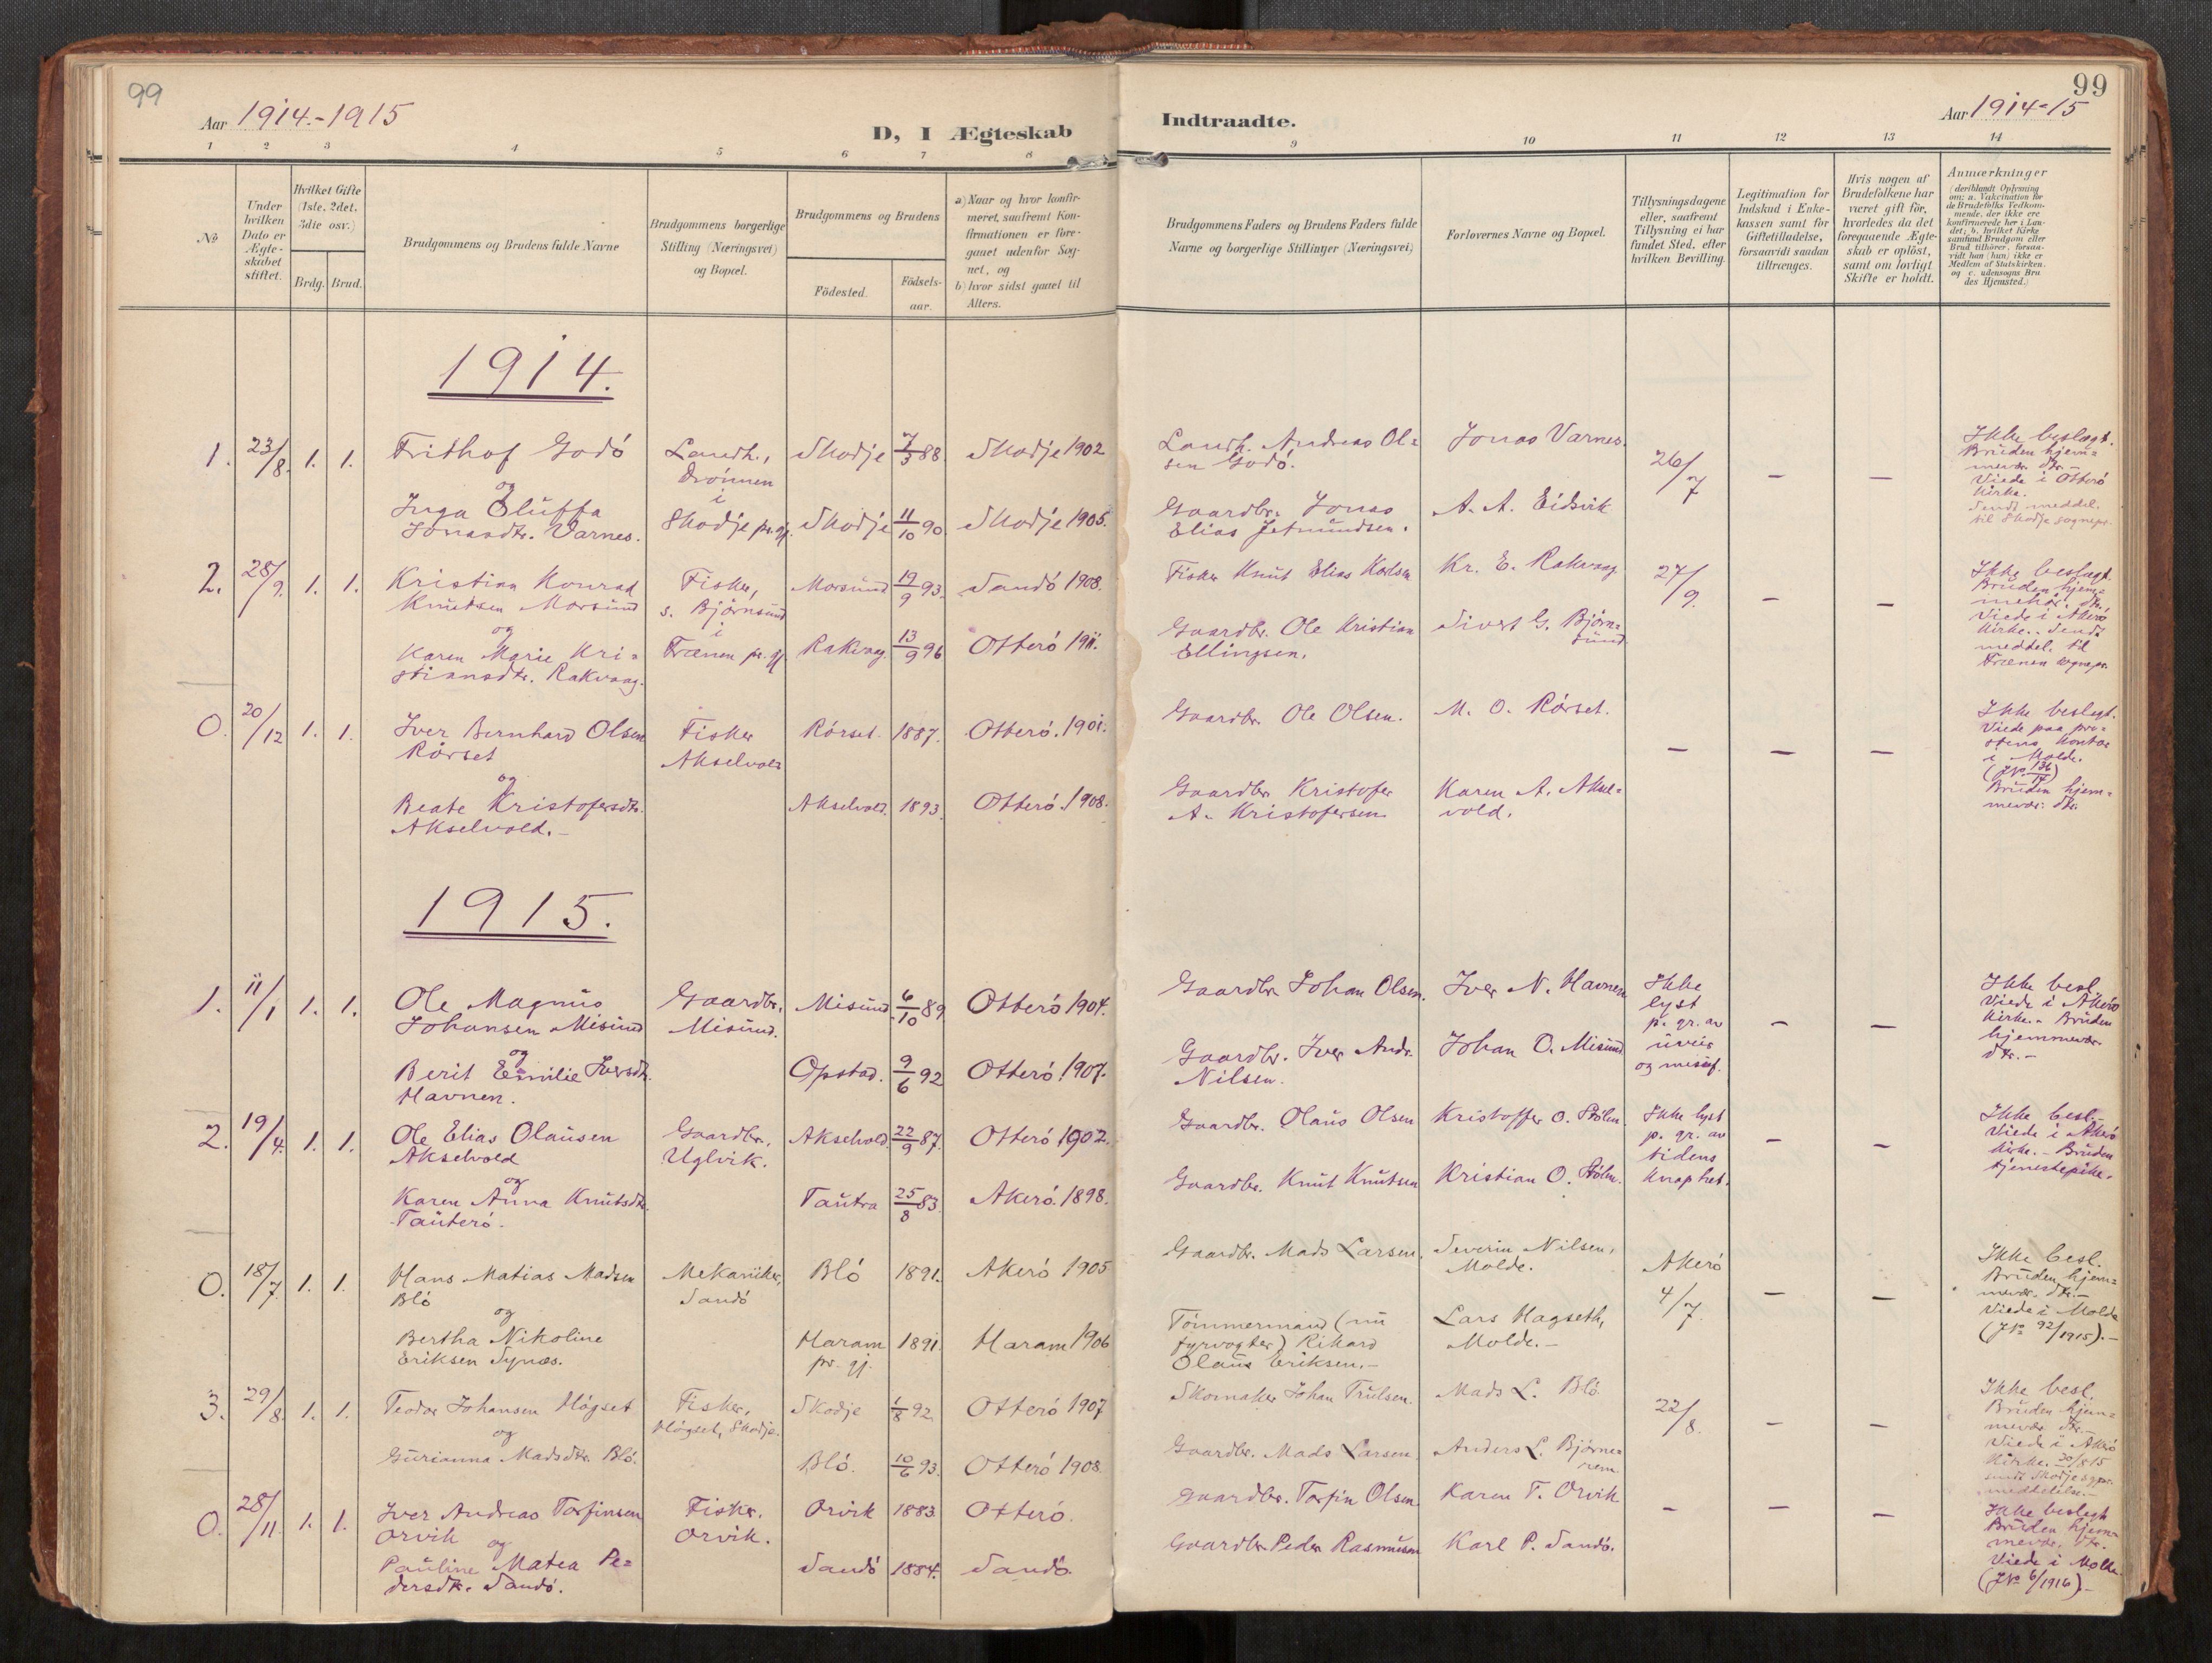 99
Aar 1914.-1915
D, I Ægteskab
1 2 3 4 5 6 7 8
No
Under hvilken Dato er Ægteskabet stiftet.
Hvilket Gifte (1ste, 2det, 3die osv.)
Brdg. Brud.
Brudgommens og Brudens fulde Navne
Brudgommens borgerlige Stilling (Næringsvei) og Bopæl.
Brudgommens og Brudens
Födested. Födselsaar.
a) Naar og hvor konfirmeret, saafremt Konfirmationen er foregaaet udenfor Sognet, og
b) hvor sidst gaaet til Alters.
1914.
1. 23/8. 1. 1. Frithof Godö Landh., Skodje 7/3 88. Skodje 1902
og Drönnen
Inga Oluffa i
Jonasdtr. Varnes. Skodje pr.gj. Skodje 11/10 90. Skodje 1905.
2. 28/9. 1. 1. Kristian Konrad Fisker, Morsund 19/9 93. Sandö 1908.
Knutsen Morsund s. Björnsund
og i
Karen Marie Kri= Frænen pr. gj. Rakvag 13/9 96 Otterö 1911.
stiansdtr. Rakvaag.
0. 20/12 1. 1. Iver Bernhard Olsen Fisker Rörset. 1887. Otterö. 1901.
Rörset Akselvold
og
Beate Kristofersdtr. Akselvold. 1893. Otterö. 1908.
Akselvold.-
1915.
1. 11/1 1. 1. Ole Magnus Gaardbr. Misund 6/10 89. Otterö 1904.
Johansen Misund Misund.
og
Berit Emilie Iversdtr. Opstad. 9/6 92 Otterö 1907.
Havnen.
2. 19/4. 1. 1. Ole Elias Olausen Gaardbr. Akselvold 22/9 87. Otterö 1902.
Akselvold Uglvik.
og
Karen Anna Knutsdtr. Tautra 25/8 83. Akerö. 1898.
Tauterö.
0. 18/7 1. 1. Hans Matias Madsen Mekaniker, Blö 1891. Akerö 1905
Blö Sandö
og
Bertha Nikoline Haram 1891. Haram 1906
Eriksen Synæs. pr. gj.
3. 29/8. 1. 1. Teodor Johansen Högset Fisker, Skodje 6/8 92. Otterö 1907
og Högset, Skodje.
Gurianna Madsdtr. Blö. Blö. 10/6 93. Otterö 1908.
0. 28/11. 1. 1. Iver Andreas Torfinsen Fisker. Orvik 1883. Otterö.
Orvik og Orvik.
Pauline Matea Pe= Sandö 1884. Sandö.
dersdtr. Sandö.
99
Indtraadte.
Aar 1914-15
9 10 11 12 13 14
Brudgommens Faders og Brudens Faders fulde Navne og borgerlige Stillinger (Næringsvei)
Forlovernes Navne og Bopæl.
Tillysningsdagene eller, saafremt Tillysning ei har fundet Sted, efter hvilken Bevilling.
Legitimation for Indskud i Enkekassen samt for Giftetilladelse, forsaavidt saadan tiltrænges.
Hvis nogen af Brudefolkene har været gift för, hvorledes da det foregaaende Ægteskab er oplöst, samt om lovligt Skifte er holdt.
Anmærkninger
(deriblandt Oplysning om: a. Vakcination for de Brudefolks Vedkommende, der ikke ere konfirmerede her i Landet; b. hvilket Kirkesamfund Brudgom eller Brud tilhörer, forsaavidt han (hun) ikke er Medlem af Statskirken, og c. udensogns Brudes Hjemsted.)
Landh. Andreas Ol= Jonas Varnes. 26/7 - - Ikke beslægt.
sen Godö. Bruden hjem=
mevær. dtr.-
Viede i Otterö
Kirke.
Gaardbr. Jonas A. A. Eidsvik Sendt meddel.
Elias Jetmundsen. til Skodje sognepr.
Fisker Knut Elias Karlsen Kr. E. Rakvaag 27/9. - - Ikke beslægt.
Bruden hjem=
Gaardbr. Ole Kristian Sivert G. Björn= Viede i Akerö
Ellingsen. sund Kirke. Sendt
meddel. til
Frænen sognepr.
Gaardbr. Ole Olsen. M. O. Rörset. - - - Ikke beslegt.
Viede paa pro=
stens kontor
i Molde.
Gaardbr. Kristofer Karen A. Aksel= Bruden hjem=
A. Kristofersen vold. mevær. dtr.
Gaardbr. Johan Olsen. Iver N. Havnen Ikke - - Ikke besl.
lyst Viede i Akerö
p. gr. av Kirke. - Bruden
Gaardbr. Iver Andr. Johan O. Misund. uveir hjemmevær.
Nilsen. og dtr.-
Gaardbr. Olaus Olsen Kristoffer O. Stölm. Ikke lyst - - Ikke besl.-
p. gr. av Viede i Akerö
tidens Kirke. - Bruden
Gaardbr. Knut Knutsen Kristian O. Stölm. knaphet. tjenestepike.
Gaardbr. Mads Larsen. Severin Nilsen, Akerö - - Ikke besl.
Molde. 4/7. Bruden hjem=
mevær. dtr.-
Tömmermand (nu Lars Hagseth, Viede i Molde
fyrvogter) Rikard Molde.- (JNo 92/1915).-
Olaus Eriksen.-
Skomaker Johan Trulsen. Mads L. Blö. 22/8. - - Ikke besl.
Bruden hjem=
mevær. dtr.-
Gaardbr. Mads Larsen. Anders L. Björne= Viede i Akerö
rem Kirke. 30/8 15
sendt Skodje sgpr.
meddelelse.-
Gaardbr. Torfin Olsen. Karen T. Orvik - - - Ikke beslegt
Bruden hjem=
Gaardbr. Peder Rasmussen Karl P. Sandö. mevær. dtr.
Viede i Molde
(JNo 6/1916).-